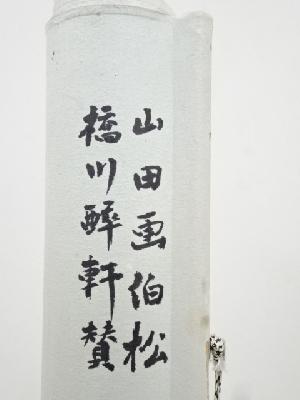 山田画伯松
橋川酔軒賛